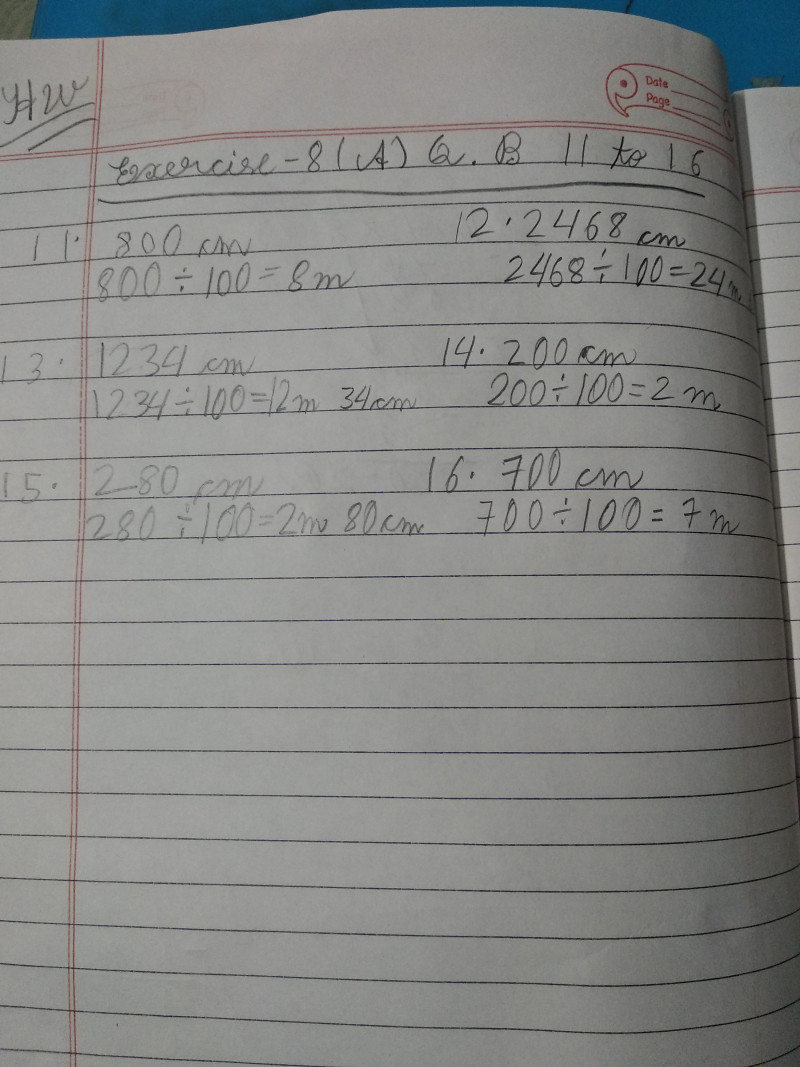 HW
Date
Page
Exercise - 8 (A) Q. B 11 to 16
11. 800 cm
800 ÷ 100 = 8 m
12. 2468 cm
2468 ÷ 100 = 24 m
13. 1234 cm
1234 ÷ 100 = 12 m 34 cm
14. 200 cm
200 ÷ 100 = 2 m
15. 280 cm
280 ÷ 100 = 2 m 80 cm
16. 700 cm
700 ÷ 100 = 7 m